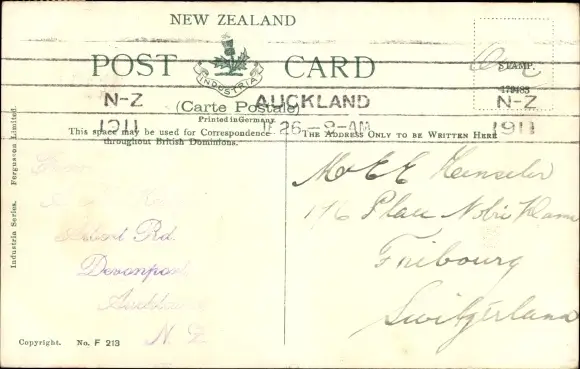 NEW ZEALAND
POST CARD
INDUSTRIA
STAMP.
179483
N-Z
AUCKLAND
N-Z
(Carte Postale)
Printed in Germany
1911
26 -8-AM
1911
This space may be used for Correspondence
throughout British Dominions.
THE ADDRESS ONLY TO BE WRITTEN HERE
Rd.
Devonport
Auckland
N. Z
Industria Series. Ferguson Limited.
Copyright. No. F 213
Mr E E
176 Place Notre Dame
Fribourg
Switzerland